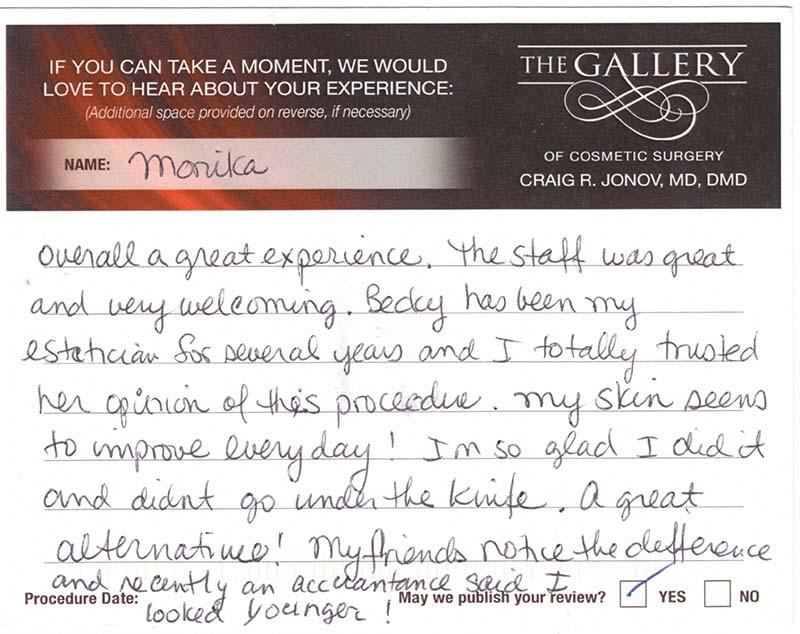 IF YOU CAN TAKE A MOMENT, WE WOULD
LOVE TO HEAR ABOUT YOUR EXPERIENCE:
(Additional space provided on reverse, if necessary)
NAME: Monika
THE GALLERY
OF COSMETIC SURGERY
CRAIG R. JONOV, MD, DMD
Overall a great experience. The staff was great
and very welcoming. Becky has been my
estetician for several years and I totally trusted
her opinion of this proceedue. My skin seems
to improve every day! Im so glad I did it
and didnt go under the knife. A great
alternative! My friends notice the defference
and recently an accuantance said I
looked younger!
Procedure Date:
May we publish your review? ✓ YES NO